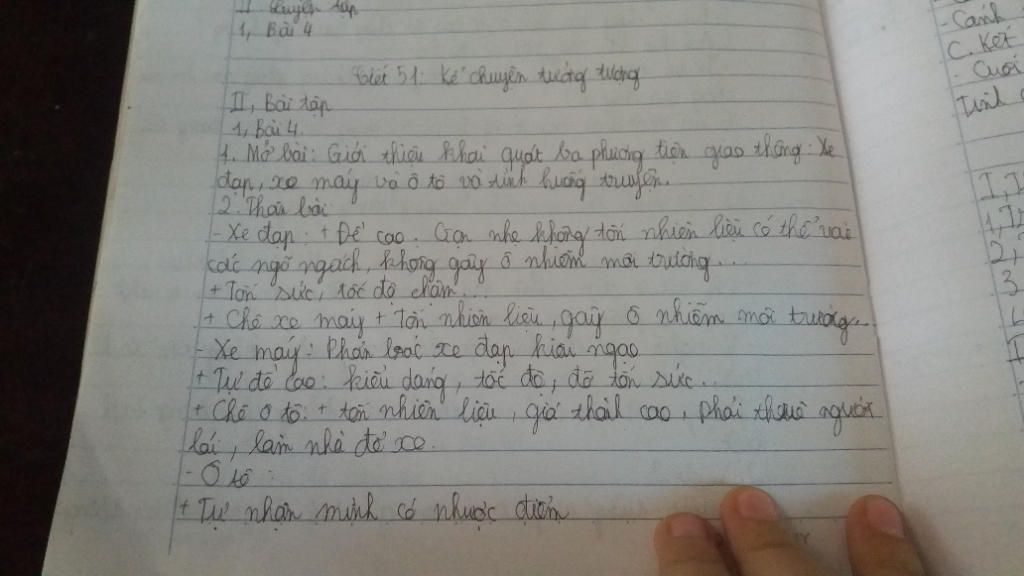 II Luyện tập
1, Bài 4
Tiết 51: Kể chuyện tưởng tượng
II, Bài tập
1, Bài 4
1. Mở bài: Giới thiệu khái quát ba phương tiện giao thông: Xe
đạp, xe máy và ô tô và tình huống truyện.
2. Thân bài
- Xe đạp: + Đề cao. Gọn nhẹ không tốn nhiên liệu có thể vào
các ngõ ngách, không gây ô nhiễm môi trường...
+ Tốn sức, tốc độ chậm...
+ Chê xe máy + Tốn nhiên liệu, gây ô nhiễm môi trường...
- Xe máy: Phản bác xe đạp kiêu ngạo
+ Tự đề cao: kiểu dáng, tốc độ, đỡ tốn sức..
+ Chê ô tô: + tốn nhiên liệu, giá thành cao, phải thuê người
lái, làm nhà để xe.
- Ô tô:
+ Tự nhận mình có nhược điểm
- Cảnh
C. Kết
- Cuối
I, I
2,
3